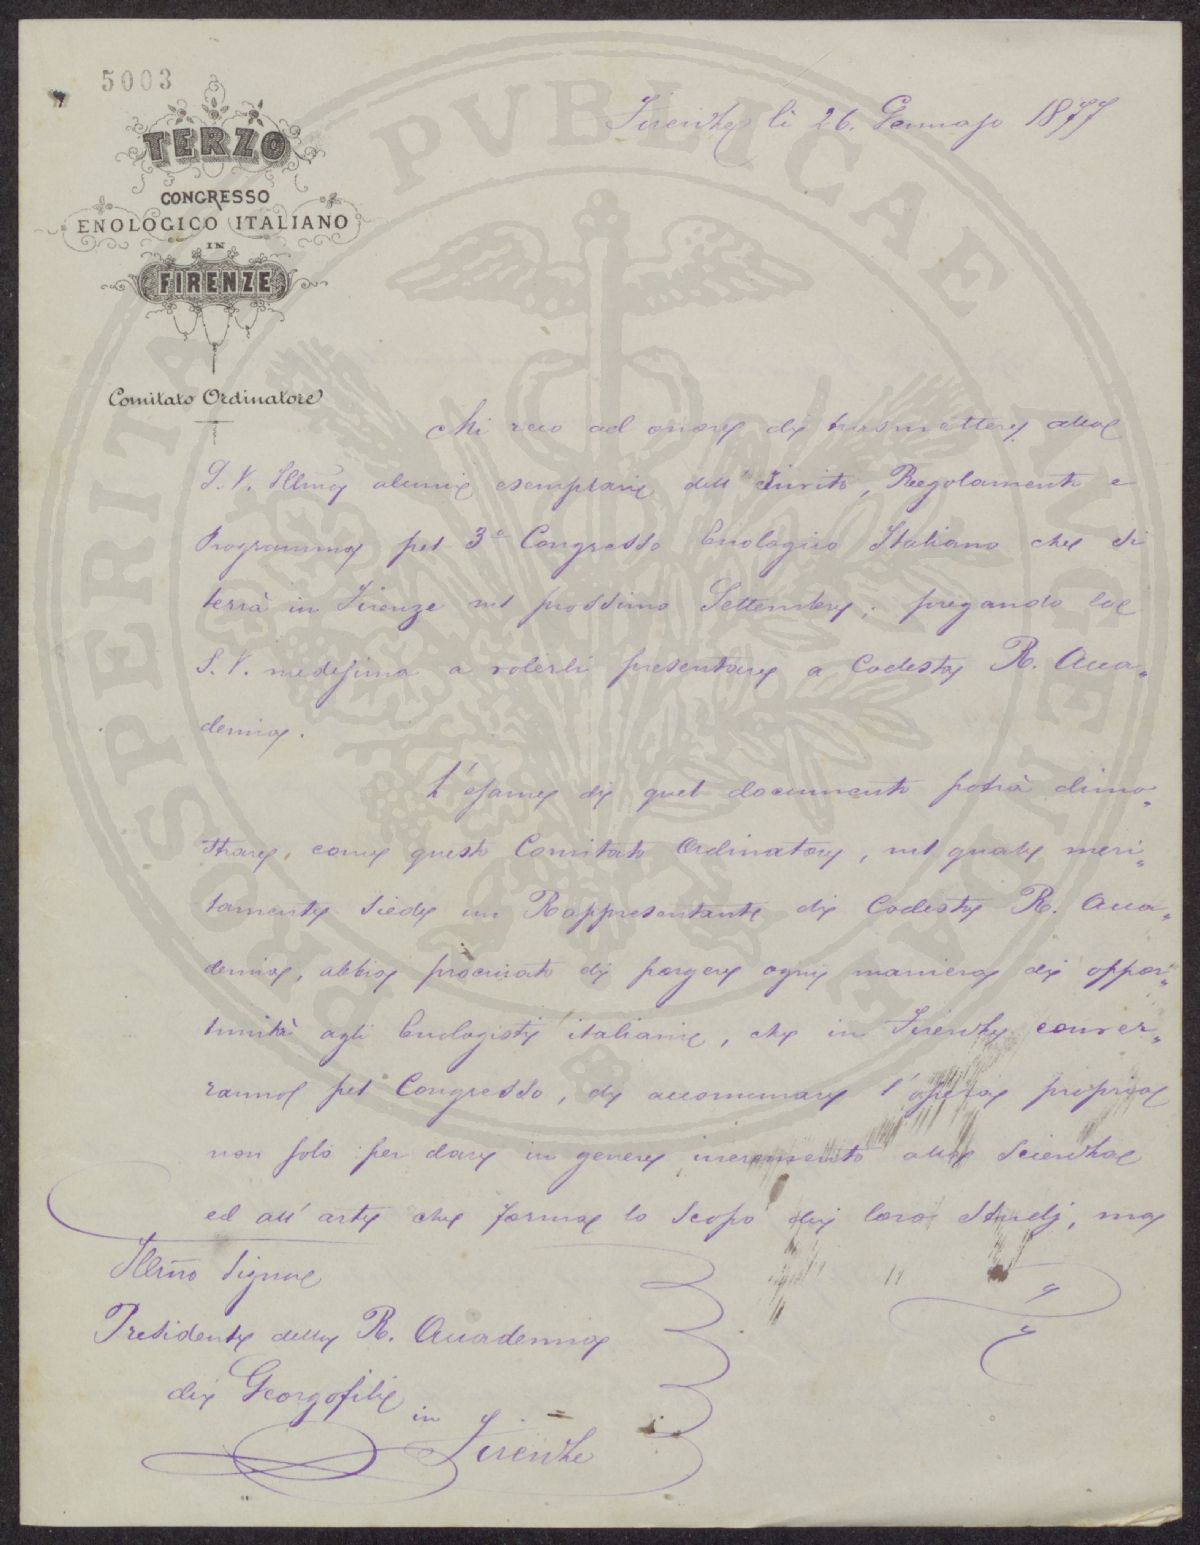 5003
TERZO
CONGRESSO
ENOLOGICO ITALIANO
IN
FIRENZE
Comitato Ordinatore
Firenze li 26. Gennajo 1877
Mi reco ad onore di trasmettere alla
S. V. Illma alcuni esemplari dell'Invito, Regolamento e
Programma pel 3º Congresso Enologico Italiano che si
terrà in Firenze nel prossimo Settembre; pregando la
S. V. medesima a volerli presentare a Codesta R. Acca„
demia.
L'esame di quel documento potrà dimo„
strare, come questo Comitato Ordinatore, nel quale meri„
tamente siede un Rappresentante di Codesta R. Acca„
demia, abbia procurato di porgere ogni maniera di oppor„
tunità agli Enologisti italiani, che in Firenze conver„
ranno pel Congresso, di accomunare l'opera propria
non solo per dare in genere incremento alla Scienza
ed all'arte che forma lo scopo dei loro Studj, ma
Illmo Signor
Presidente della R. Accademia
dei Georgofili
in Firenze
PROSPERITATI PVBLICAE AVGENDAE